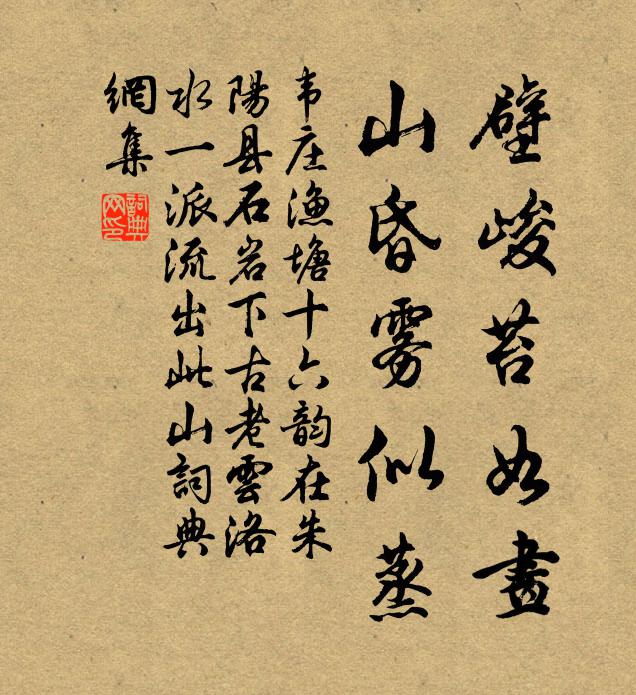 壁峻苔如畫
山昏霧似蒸
韦庄漁塘十六韵在朱
陽县石岩下古老雲洛
水一派流出此山詞典
網集
詞典
网印